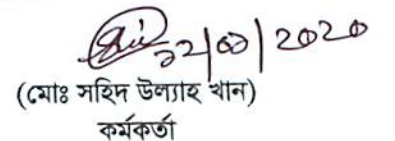 ১২|০৩|2020
(মোঃ সহিদ উল্যাহ খান)
কর্মকর্তা